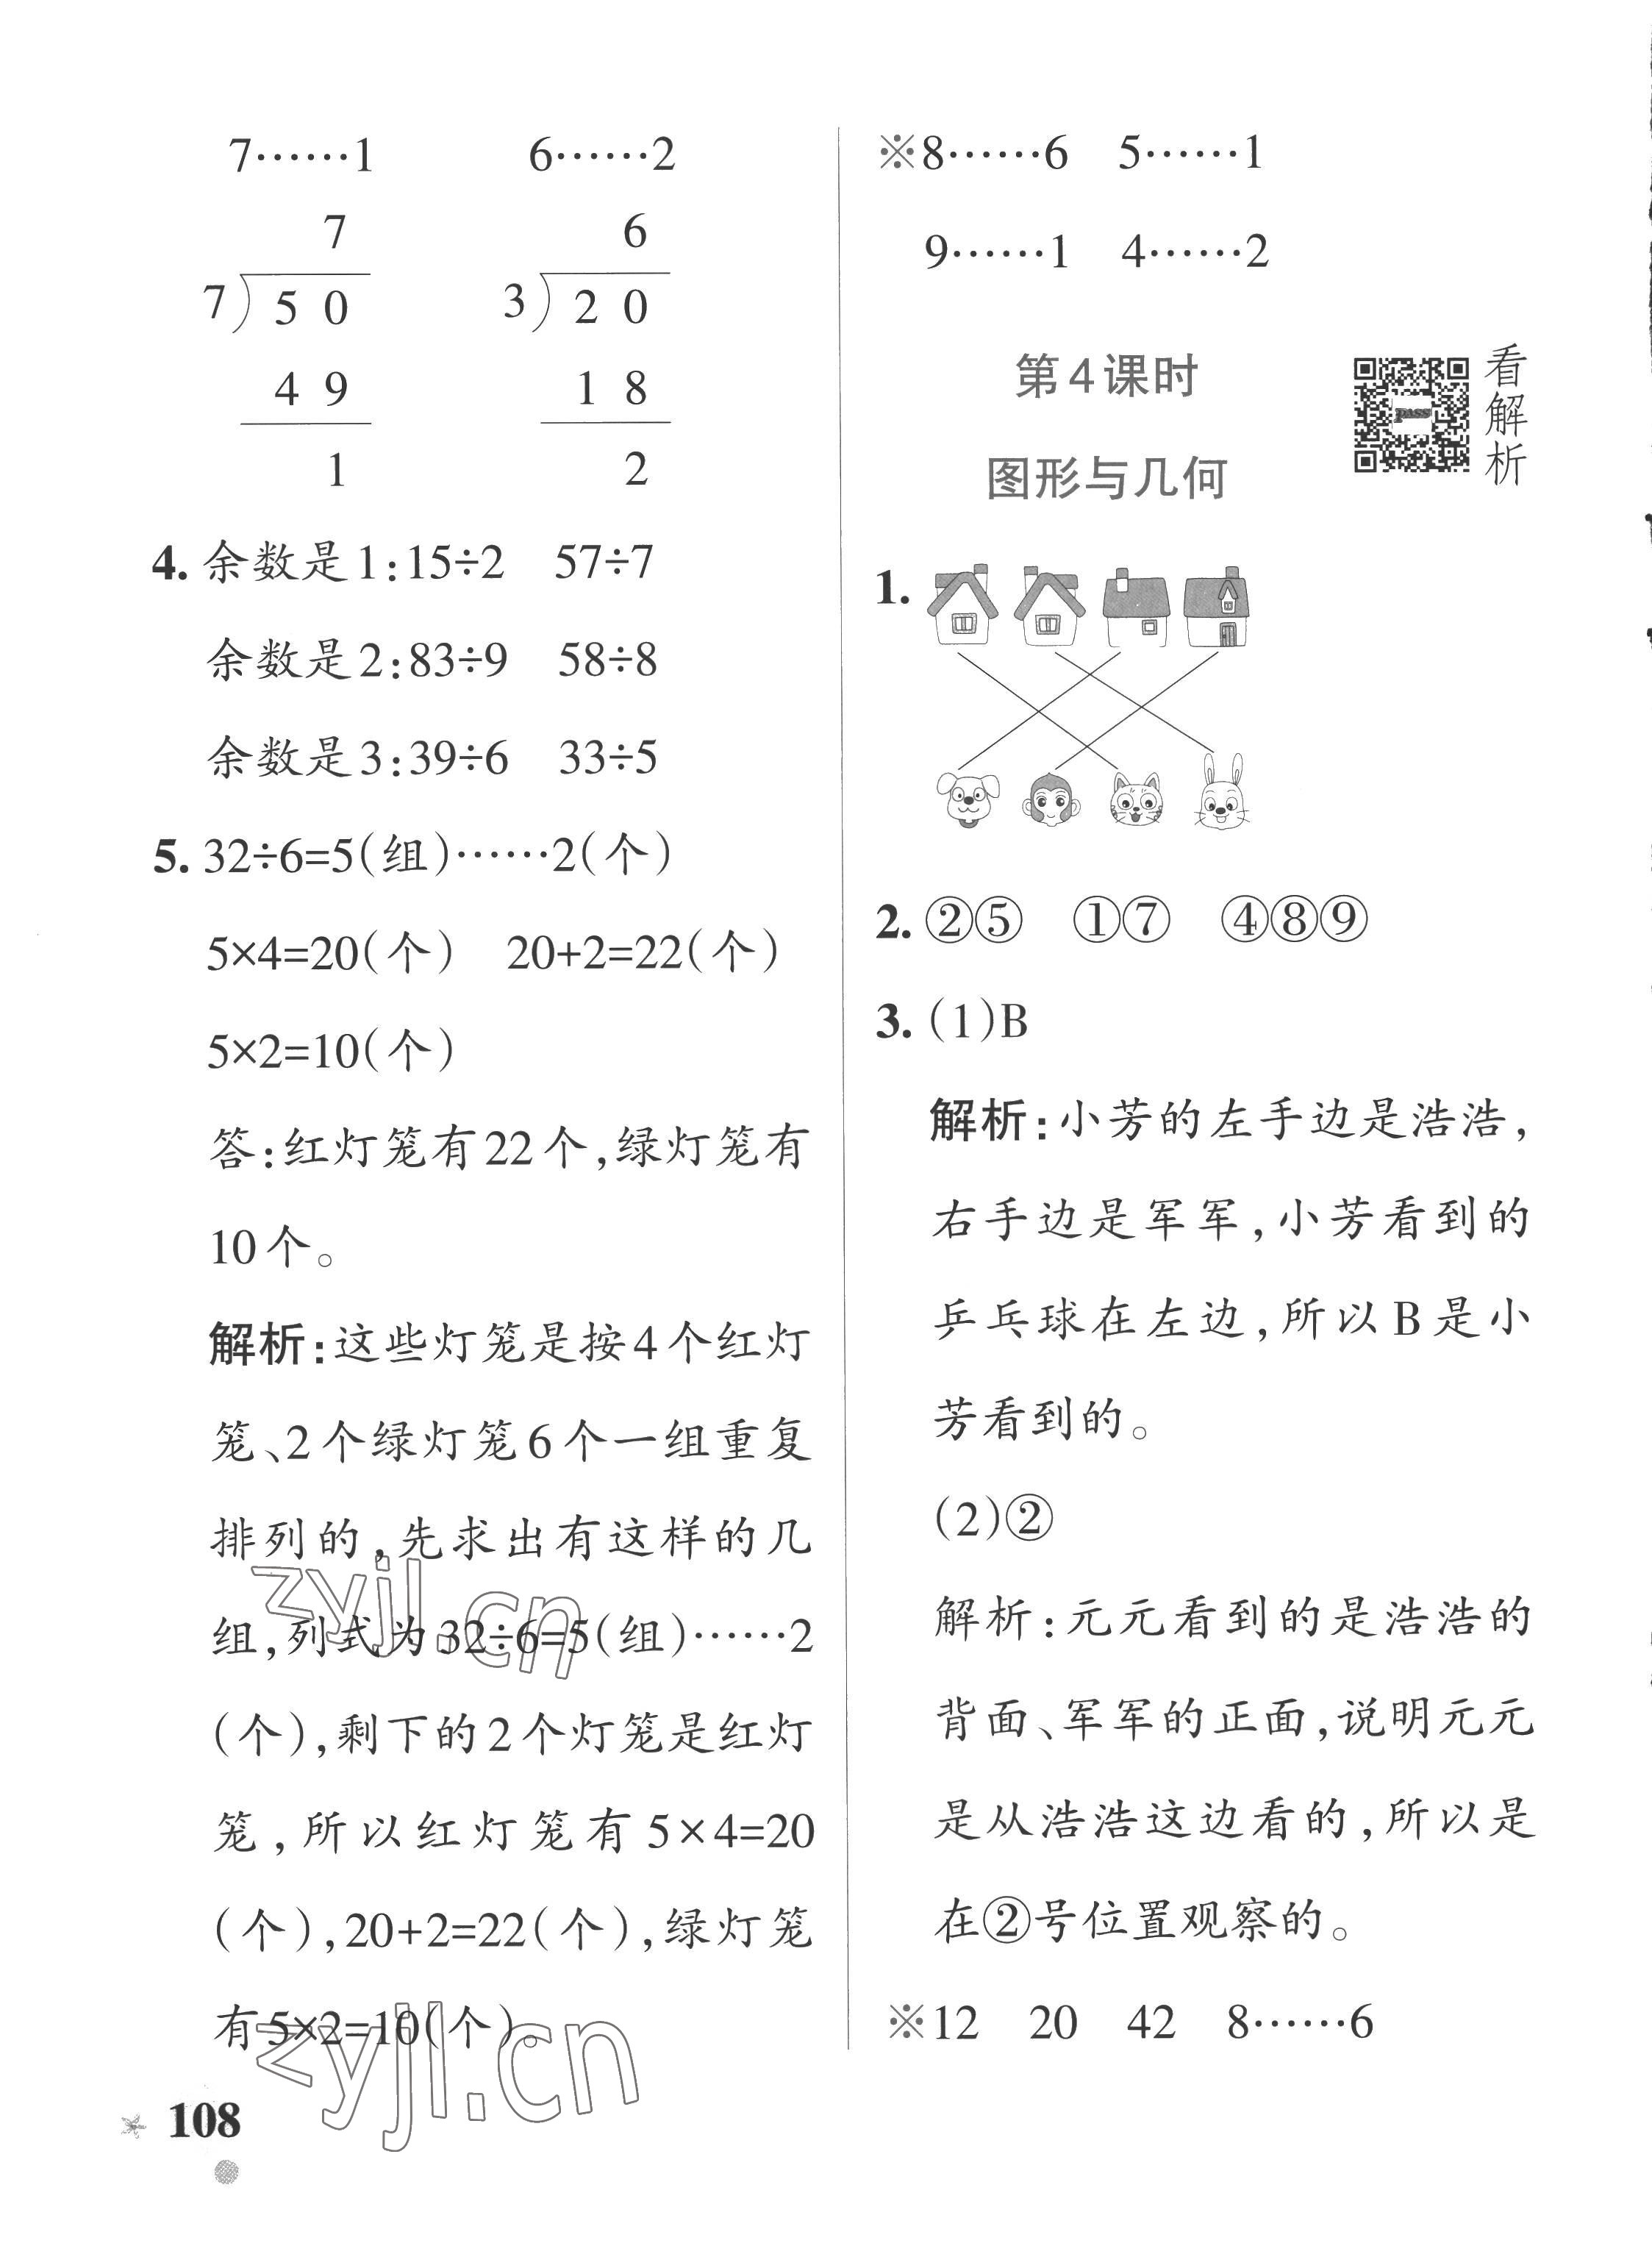 7……1 6……2
7
7 50
49
1
6
3 20
18
2
4. 余数是1:15÷2 57÷7
余数是2:83÷9 58÷8
余数是3:39÷6 33÷5
5. 32÷6=5(组)……2(个)
5×4=20(个) 20+2=22(个)
5×2=10(个)
答:红灯笼有22个,绿灯笼有
10个。
解析:这些灯笼是按4个红灯
笼、2个绿灯笼6个一组重复
排列的,先求出有这样的几
组,列式为32÷6=5(组)……2
(个),剩下的2个灯笼是红灯
笼,所以红灯笼有5×4=20
(个),20+2=22(个),绿灯笼
有5×2=10(个)。
zyjl.cn
zyjl.cn
108
※8……6 5……1
9……1 4……2
第4课时
图形与几何
pass
看解析
1.
2. ②⑤ ①⑦ ④⑧⑨
3. (1)B
解析:小芳的左手边是浩浩,
右手边是军军,小芳看到的
乒乓球在左边,所以B是小
芳看到的。
(2)②
解析:元元看到的是浩浩的
背面、军军的正面,说明元元
是从浩浩这边看的,所以是
在②号位置观察的。
※12 20 42 8……6